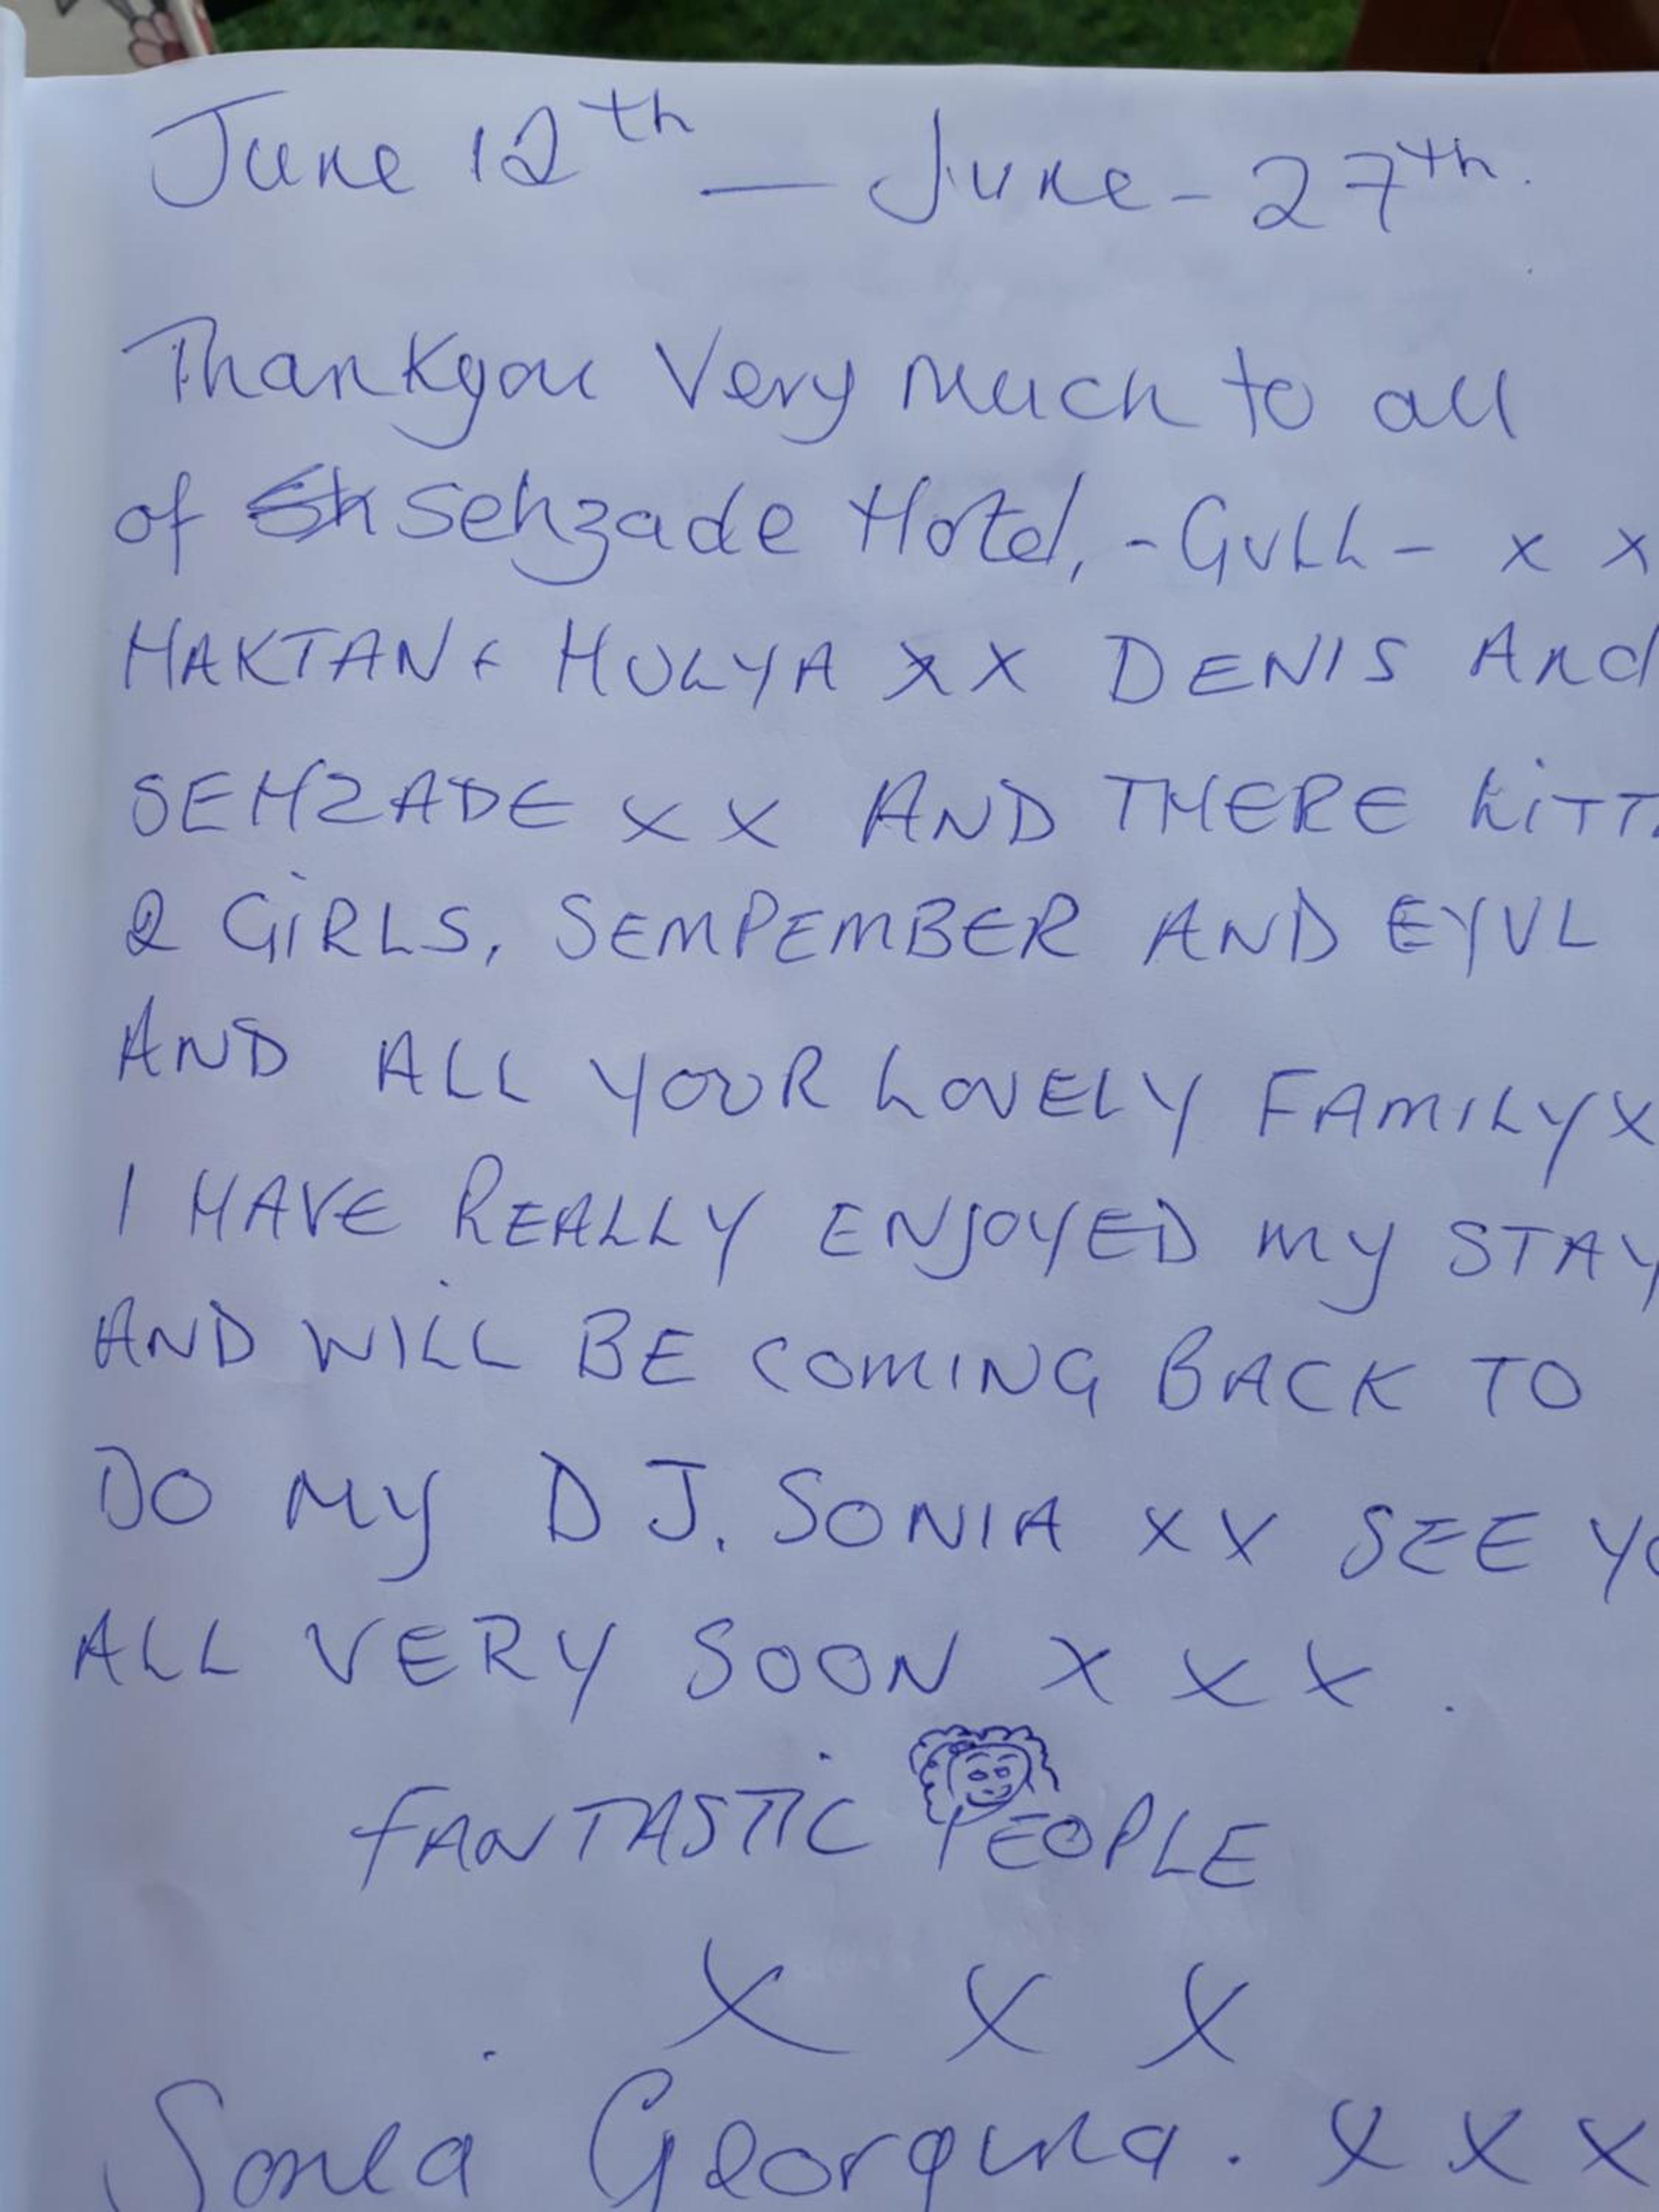 June 12th — June - 27th.
Thankyou Very Much to all
of Sehzade Hotel, - GULL - x x
HAKTAN & HULYA XX DENIS And
SEHZADE x x AND THERE LITT
2 GiRLS, SEMPEMBER AND EYUL
AND ALL YOUR LOVELY FAMILY X
I HAVE REALLY ENJOYED MY STAY
AND WILL BE COMING BACK TO
DO MY DJ. SONIA XX SEE YO
ALL VERY SOON X X X.
FANTASTIC PEOPLE
X X X
Sonia Georgina. X X X